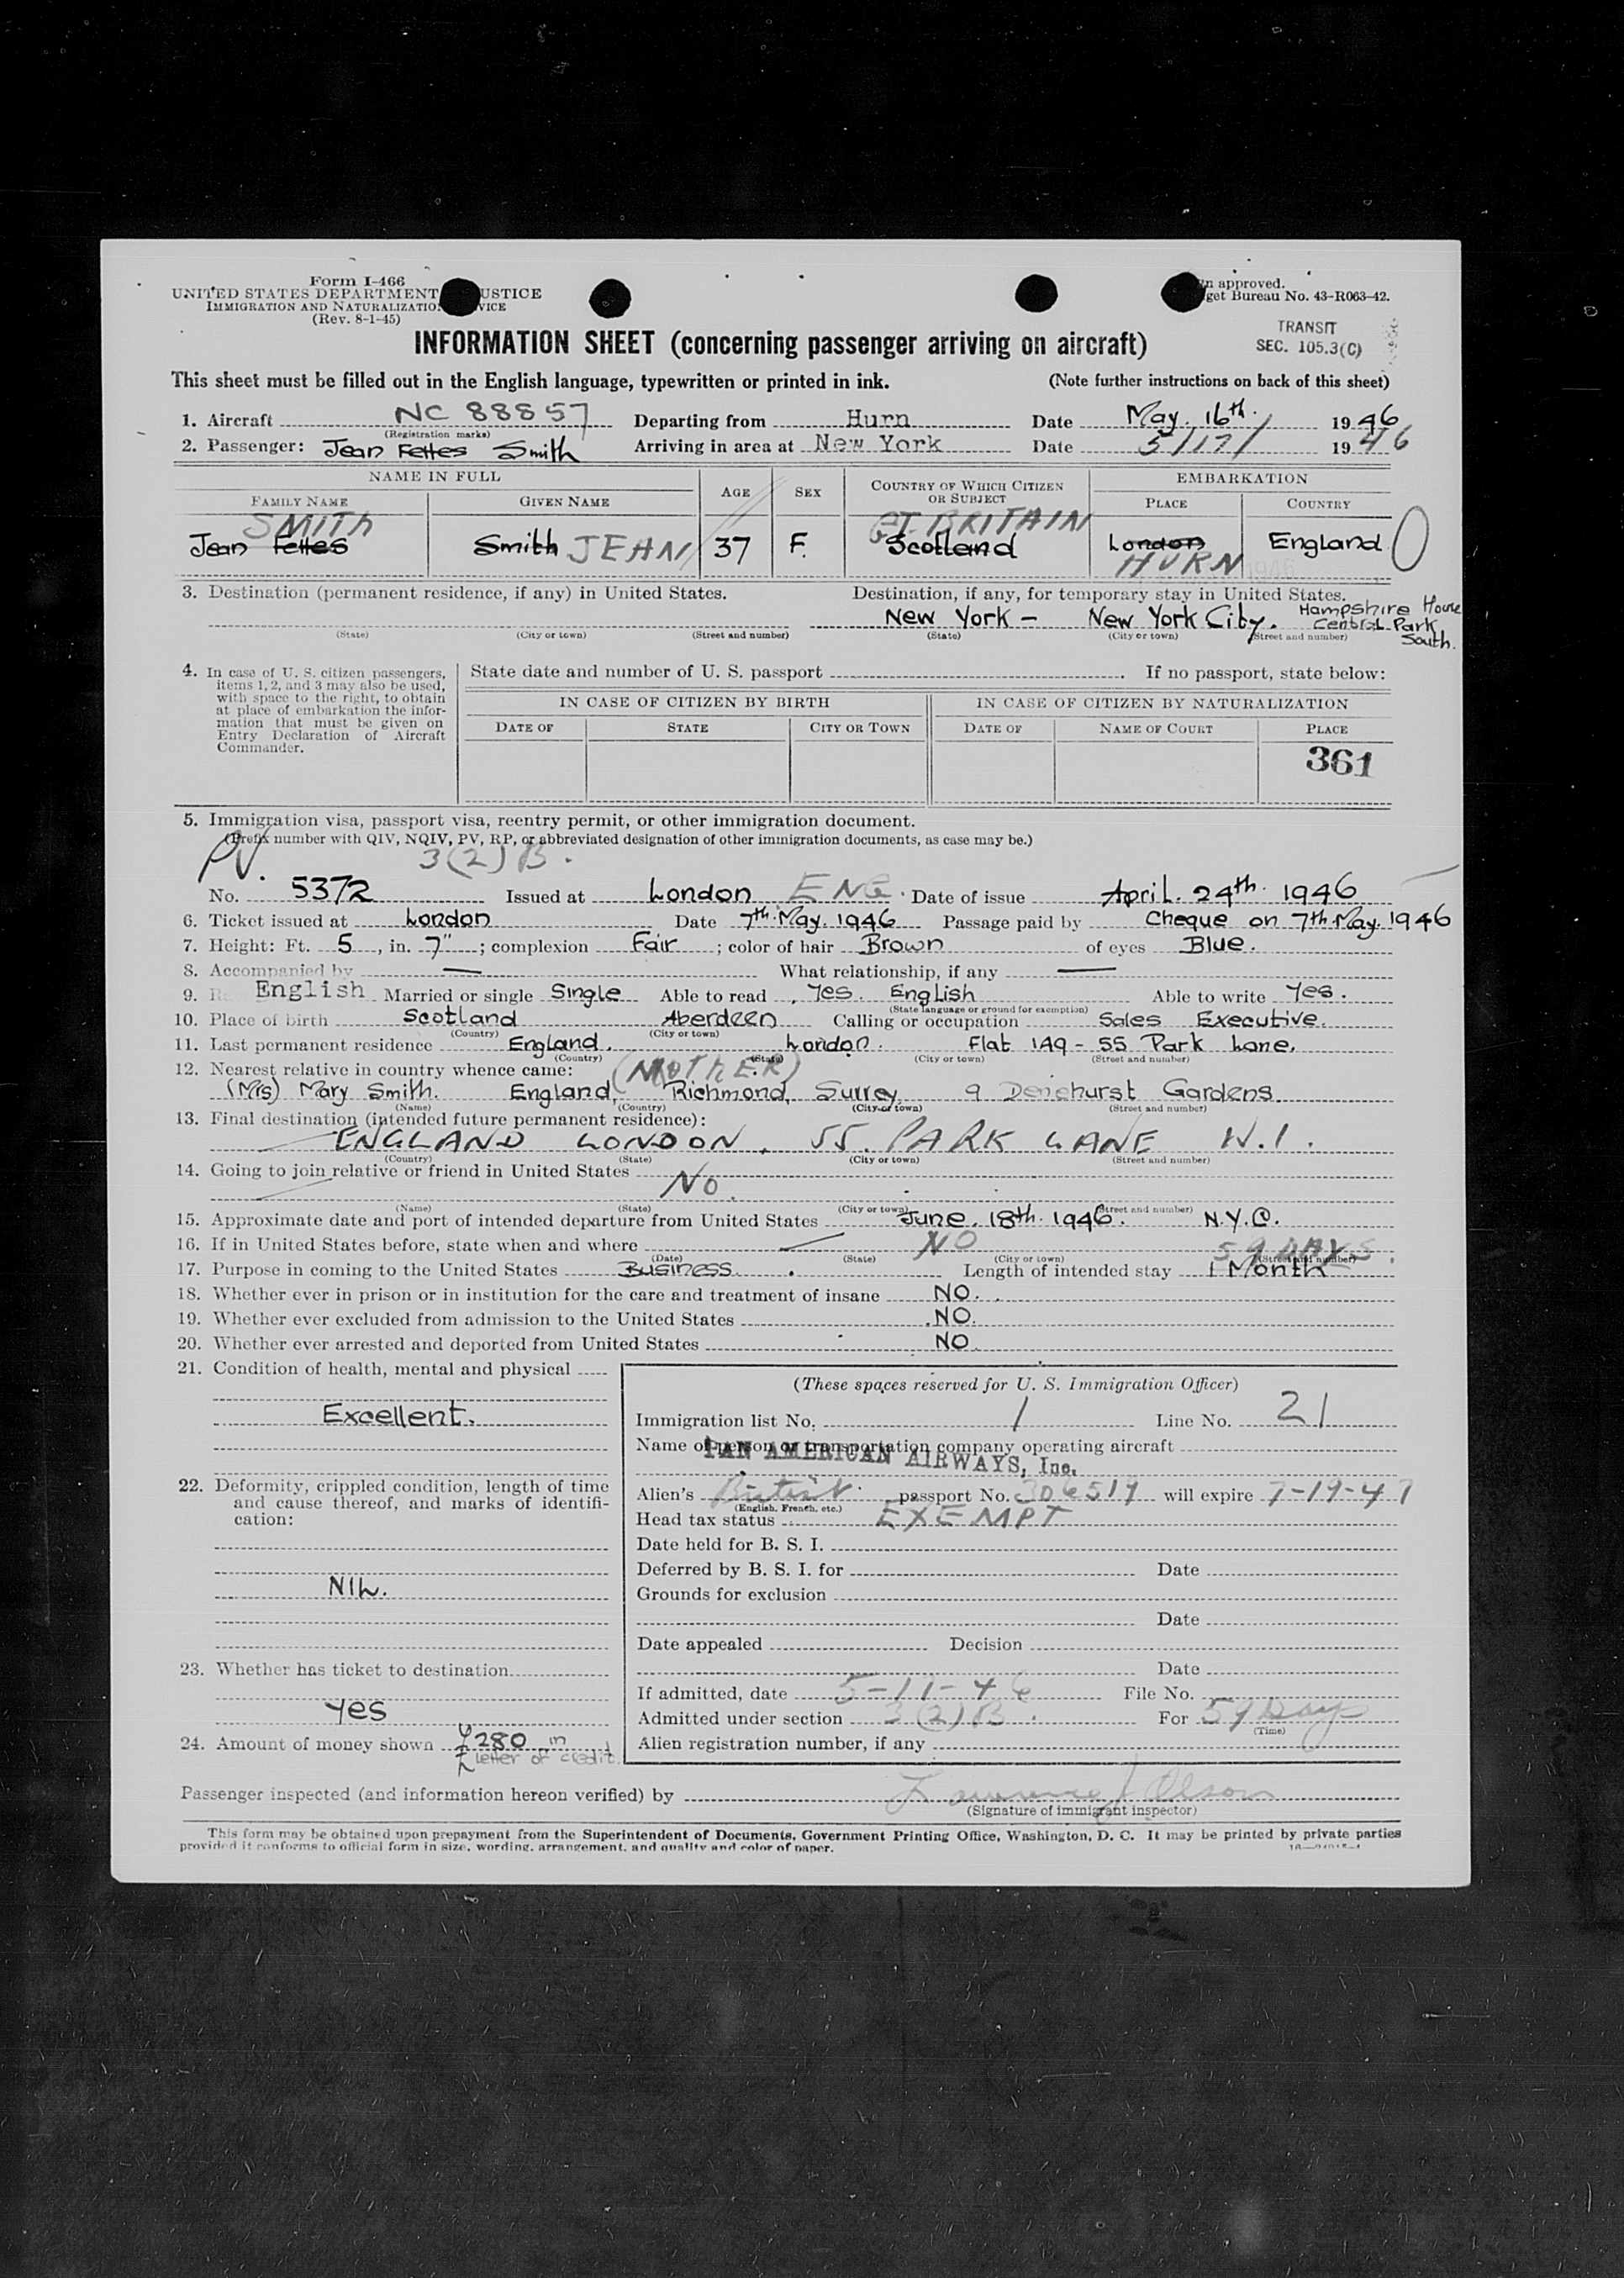 Form I-466
UNITED STATES DEPARTMENT JUSTICE
IMMIGRATION AND NATURALIZATION SERVICE
(Rev. 8-1-45)
n approved.
get Bureau No. 43-R063-42.
TRANSIT
SEC. 105.3(C)
INFORMATION SHEET (concerning passenger arriving on aircraft)
This sheet must be filled out in the English language, typewritten or printed in ink. (Note further instructions on back of this sheet)
1. Aircraft NC 88857 Departing from Hurn Date May. 16th. 1946
(Registration marks)
2. Passenger: Jean Fettes Smith Arriving in area at New York Date 5/17/ 1946
NAME IN FULL AGE SEX COUNTRY OF WHICH CITIZEN OR SUBJECT EMBARKATION
FAMILY NAME GIVEN NAME PLACE COUNTRY
SMITH GT. BRITAIN
Jean Fettes Smith JEAN 37 F. Scotland London England 0
HURN
3. Destination (permanent residence, if any) in United States. Destination, if any, for temporary stay in United States.
New York - New York City. Hampshire House Central Park South.
(State) (City or town) (Street and number) (State) (City or town) (Street and number)
4. In case of U. S. citizen passengers, items 1, 2, and 3 may also be used, with space to the right, to obtain at place of embarkation the information that must be given on Entry Declaration of Aircraft Commander.
State date and number of U. S. passport If no passport, state below:
IN CASE OF CITIZEN BY BIRTH IN CASE OF CITIZEN BY NATURALIZATION
DATE OF STATE CITY OR TOWN DATE OF NAME OF COURT PLACE
361
5. Immigration visa, passport visa, reentry permit, or other immigration document.
(Prefix number with QIV, NQIV, PV, RP, or abbreviated designation of other immigration documents, as case may be.)
PV. 3(2)B.
No. 5372 Issued at London ENG. Date of issue April. 24th. 1946
6. Ticket issued at London Date 7th. May. 1946 Passage paid by Cheque on 7th. May. 1946
7. Height: Ft. 5, in. 7"; complexion Fair; color of hair Brown of eyes Blue.
8. Accompanied by — What relationship, if any —
9. English Married or single Single Able to read Yes. English Able to write Yes.
(State language or ground for exemption)
10. Place of birth Scotland Aberdeen Calling or occupation Sales Executive.
(Country) (City or town)
11. Last permanent residence England. London. Flat 149 - 55 Park Lane.
(Country) (State) (City or town) (Street and number)
12. Nearest relative in country whence came: (MOTHER)
(Mrs) Mary Smith. England, Richmond, Surrey, 9 Denehurst Gardens.
(Name) (Country) (City or town) (Street and number)
13. Final destination (intended future permanent residence):
ENGLAND LONDON, 55. PARK LANE W.1.
(Country) (State) (City or town) (Street and number)
14. Going to join relative or friend in United States No.
(Name) (State) (City or town) (Street and number)
15. Approximate date and port of intended departure from United States June. 18th. 1946. N.Y.C.
16. If in United States before, state when and where NO
(Date) (State) (City or town) (Street and number)
59 DAYS
17. Purpose in coming to the United States Business. Length of intended stay 1 Month
18. Whether ever in prison or in institution for the care and treatment of insane NO.
19. Whether ever excluded from admission to the United States NO.
20. Whether ever arrested and deported from United States NO.
21. Condition of health, mental and physical
Excellent.
22. Deformity, crippled condition, length of time and cause thereof, and marks of identification:
NIL.
23. Whether has ticket to destination
Yes
24. Amount of money shown £280 in
£ letter of credit
(These spaces reserved for U. S. Immigration Officer)
Immigration list No. 1 Line No. 21
Name of person or transportation company operating aircraft
PAN AMERICAN AIRWAYS, Inc.
Alien's British passport No. 306519 will expire 7-19-47
(English, French, etc.)
Head tax status EXEMPT
Date held for B. S. I.
Deferred by B. S. I. for Date
Grounds for exclusion
Date
Date appealed Decision
Date
If admitted, date 5-17-46 File No.
Admitted under section 3(2)B. For 59 Days
(Time)
Alien registration number, if any
Passenger inspected (and information hereon verified) by Lawrence J Olson
(Signature of immigrant inspector)
This form may be obtained upon prepayment from the Superintendent of Documents, Government Printing Office, Washington, D. C. It may be printed by private parties
provided it conforms to official form in size, wording, arrangement, and quality and color of paper.